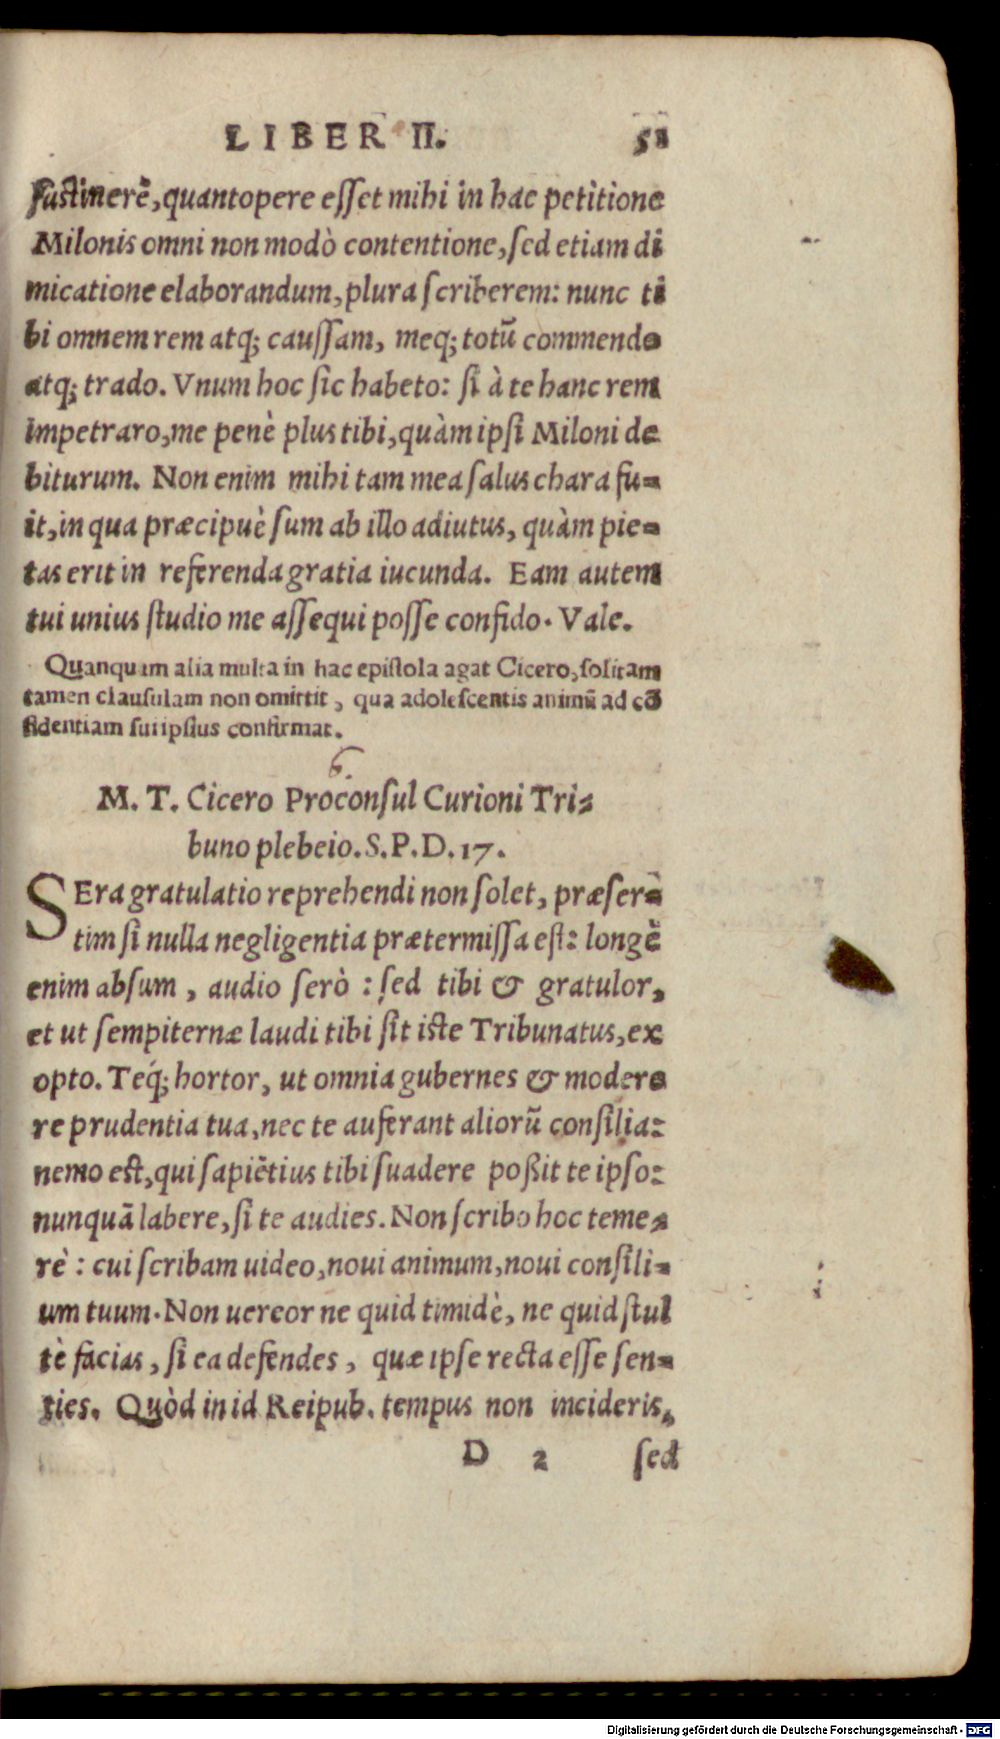 LIBER II. 51
sustinerē, quantopere esset mihi in hac petitione
Milonis omni non modò contentione, sed etiam di
micatione elaborandum, plura scriberem: nunc ti
bi omnem rem atq; caussam, meq; totū commendo
atq; trado. Vnum hoc sic habeto: si à te hanc rem
impetraro, me penè plus tibi, quàm ipsi Miloni de
biturum. Non enim mihi tam mea salus chara fu-
it, in qua præcipuè sum ab illo adiutus, quàm pie-
tas erit in referenda gratia iucunda. Eam autem
tui unius studio me assequi posse confido. Vale.
Quanquam alia multa in hac epistola agat Cicero, solitam
tamen clausulam non omittit, qua adolescentis animū ad cō
fidentiam sui ipsius confirmat.
6.
M. T. Cicero Proconsul Curioni Tri-
buno plebeio. S. P. D. 17.
SEra gratulatio reprehendi non solet, præser-
tim si nulla negligentia prætermissa est: longè
enim absum, audio serò: sed tibi & gratulor,
et ut sempiternæ laudi tibi sit iste Tribunatus, ex
opto. Teq́; hortor, ut omnia gubernes & modere
re prudentia tua, nec te auferant aliorū consilia:
nemo est, qui sapiētius tibi suadere poßit te ipso:
nunquā labere, si te audies. Non scribo hoc teme-
rè: cui scribam uideo, noui animum, noui consili-
um tuum. Non uereor ne quid timidè, ne quid stul
tè facias, si ea defendes, quæ ipse recta esse sen-
ties. Quòd in id Reipub. tempus non incideris,
D 2 sed
Digitalisierung gefördert durch die Deutsche Forschungsgemeinschaft - DFG